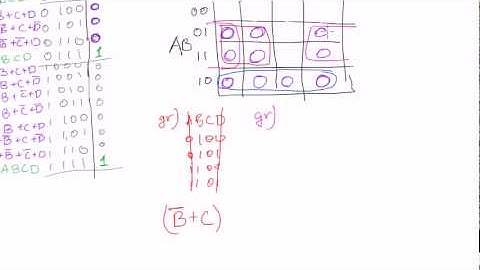 B+C+D 0 1 0 0 0
B̅+C+D̅ 0 1 0 1 0
B̅+C̅+D 0 1 1 0 0
BCD 0 1 1 1 1
B+C+D 1 0 0 0 0
B+C+D̅ 1 0 0 1 0
B+C̅+D 1 0 1 0 0
B+C̅+D̅ 1 0 1 1 0
B̅+C+D 1 1 0 0 0
B̅+C+D̅ 1 1 0 1 0
+B̅+C̅+D 1 1 1 0 0
ABCD 1 1 1 1 1
00
01 0 0 0
AB
11 0 0 0
10 0 0 0 0
gr) ABCD
0 1 0 0
0 1 0 1
1 1 0 0
1 1 0
(B̅+C)
gr)